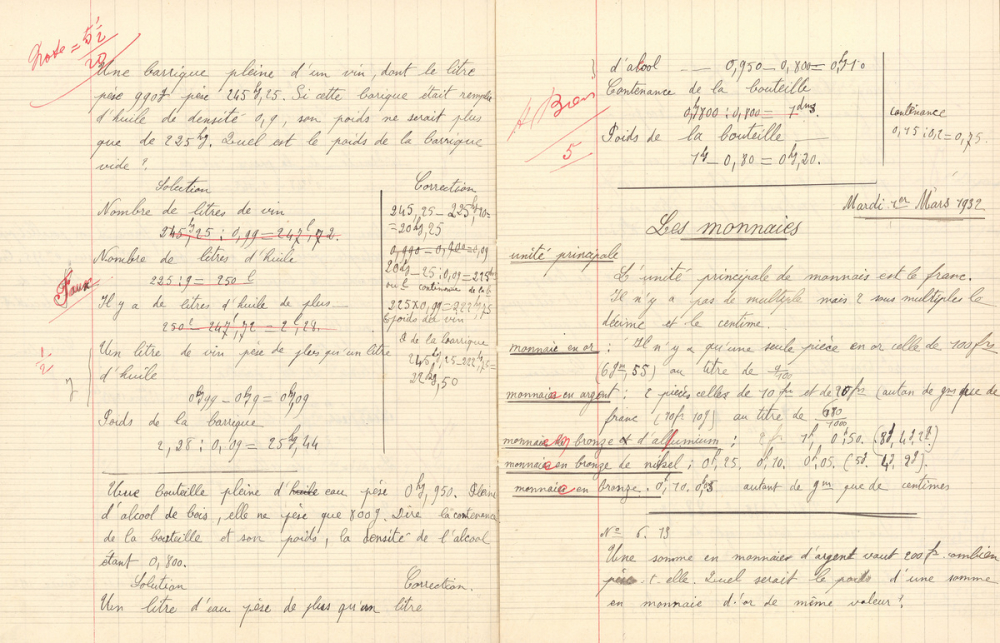 Note = 5 1/2
20
Une barrique pleine d'un vin, dont le litre
pèse 990g pèse 245kg,25. Si cette barique était remplie
d'huile de densité 0,9, son poids ne serait plus
que de 225kg. Quel est le poids de la barrique
vide ?
Solution
Nombre de litres de vin
245kg,25 : 0,99 = 247l,72.
Nombre de litres d'huile
225 : 9 = 250 l
Faux
Il y a de litres d'huile de plus
250l - 247l,72 = 2l,28.
Un litre de vin pèse de plus qu'un litre
d'huile
0kg99 - 0kg9 = 0kg09
Poids de la barrique
2,28 : 0,09 = 25kg,44
Correction
= 20kg,25
0,990 - 0,900 = 0,09
poids du vin
de la barrique
22kg,50
Une bouteille pleine d'huile eau pèse 0kg,950. Pleine
d'alcool de bois, elle ne pèse que 800g. Dire la contenance
de la bouteille et son poids, la densité de l'alcool
étant 0,800.
Solution
Correction.
Un litre d'eau pèse de plus qu'un litre
d'alcool 0,950 - 0,800 =
Contenance de la bouteille
Poids de la bouteille
1kg - 0,80 = 0kg,20.
contenance
0,15 : 0,2 = 0,75.
A. Bien
5
Mardi 1er Mars 1932
Les monnaies
unité principale
L'unité principale de monnais est le franc.
Il n'y a pas de multiple mais 2 sous multiples le
décime et le centime.
monnaie en or : Il n'y a qu'une seule pièce en or celle de 100frs
(6gm,55) au titre de 9/100
monnaie en argent : 2 pièces celles de 10frs et de 20frs (autan de gms que de
franc (10fr 10g) au titre de 680/1000
monnaie en bronze et d'allumium : 2fr 1f, 0f,50. (8g, 4g, 2g)
monnaie en bronze de nikel : 0f,25, 0f,10. 0f,05. (5g 4g 2g).
monnaie en bronze. 0f,10. 0f,05 autant de gm que de centimes
No 6. 13
Une somme en monnaies d'argent vaut 200fr. combien
pèse t. elle. Quel serait le poids d'une somme
en monnaie d'or de même valeur ?.